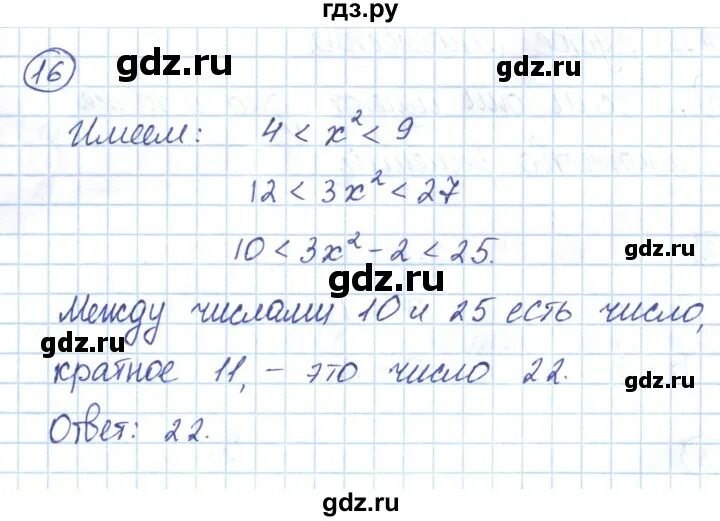 гдз.ру
16
gdz.ru
gdz.ru
Имеем: 4 < x² < 9
12 < 3x² < 27
10 < 3x² - 2 < 25.
gdz.ru
gdz.ru
Между числами 10 и 25 есть число,
gdz.ru
кратное 11, - это число 22.
gdz.ru
Ответ: 22.
gdz.ru